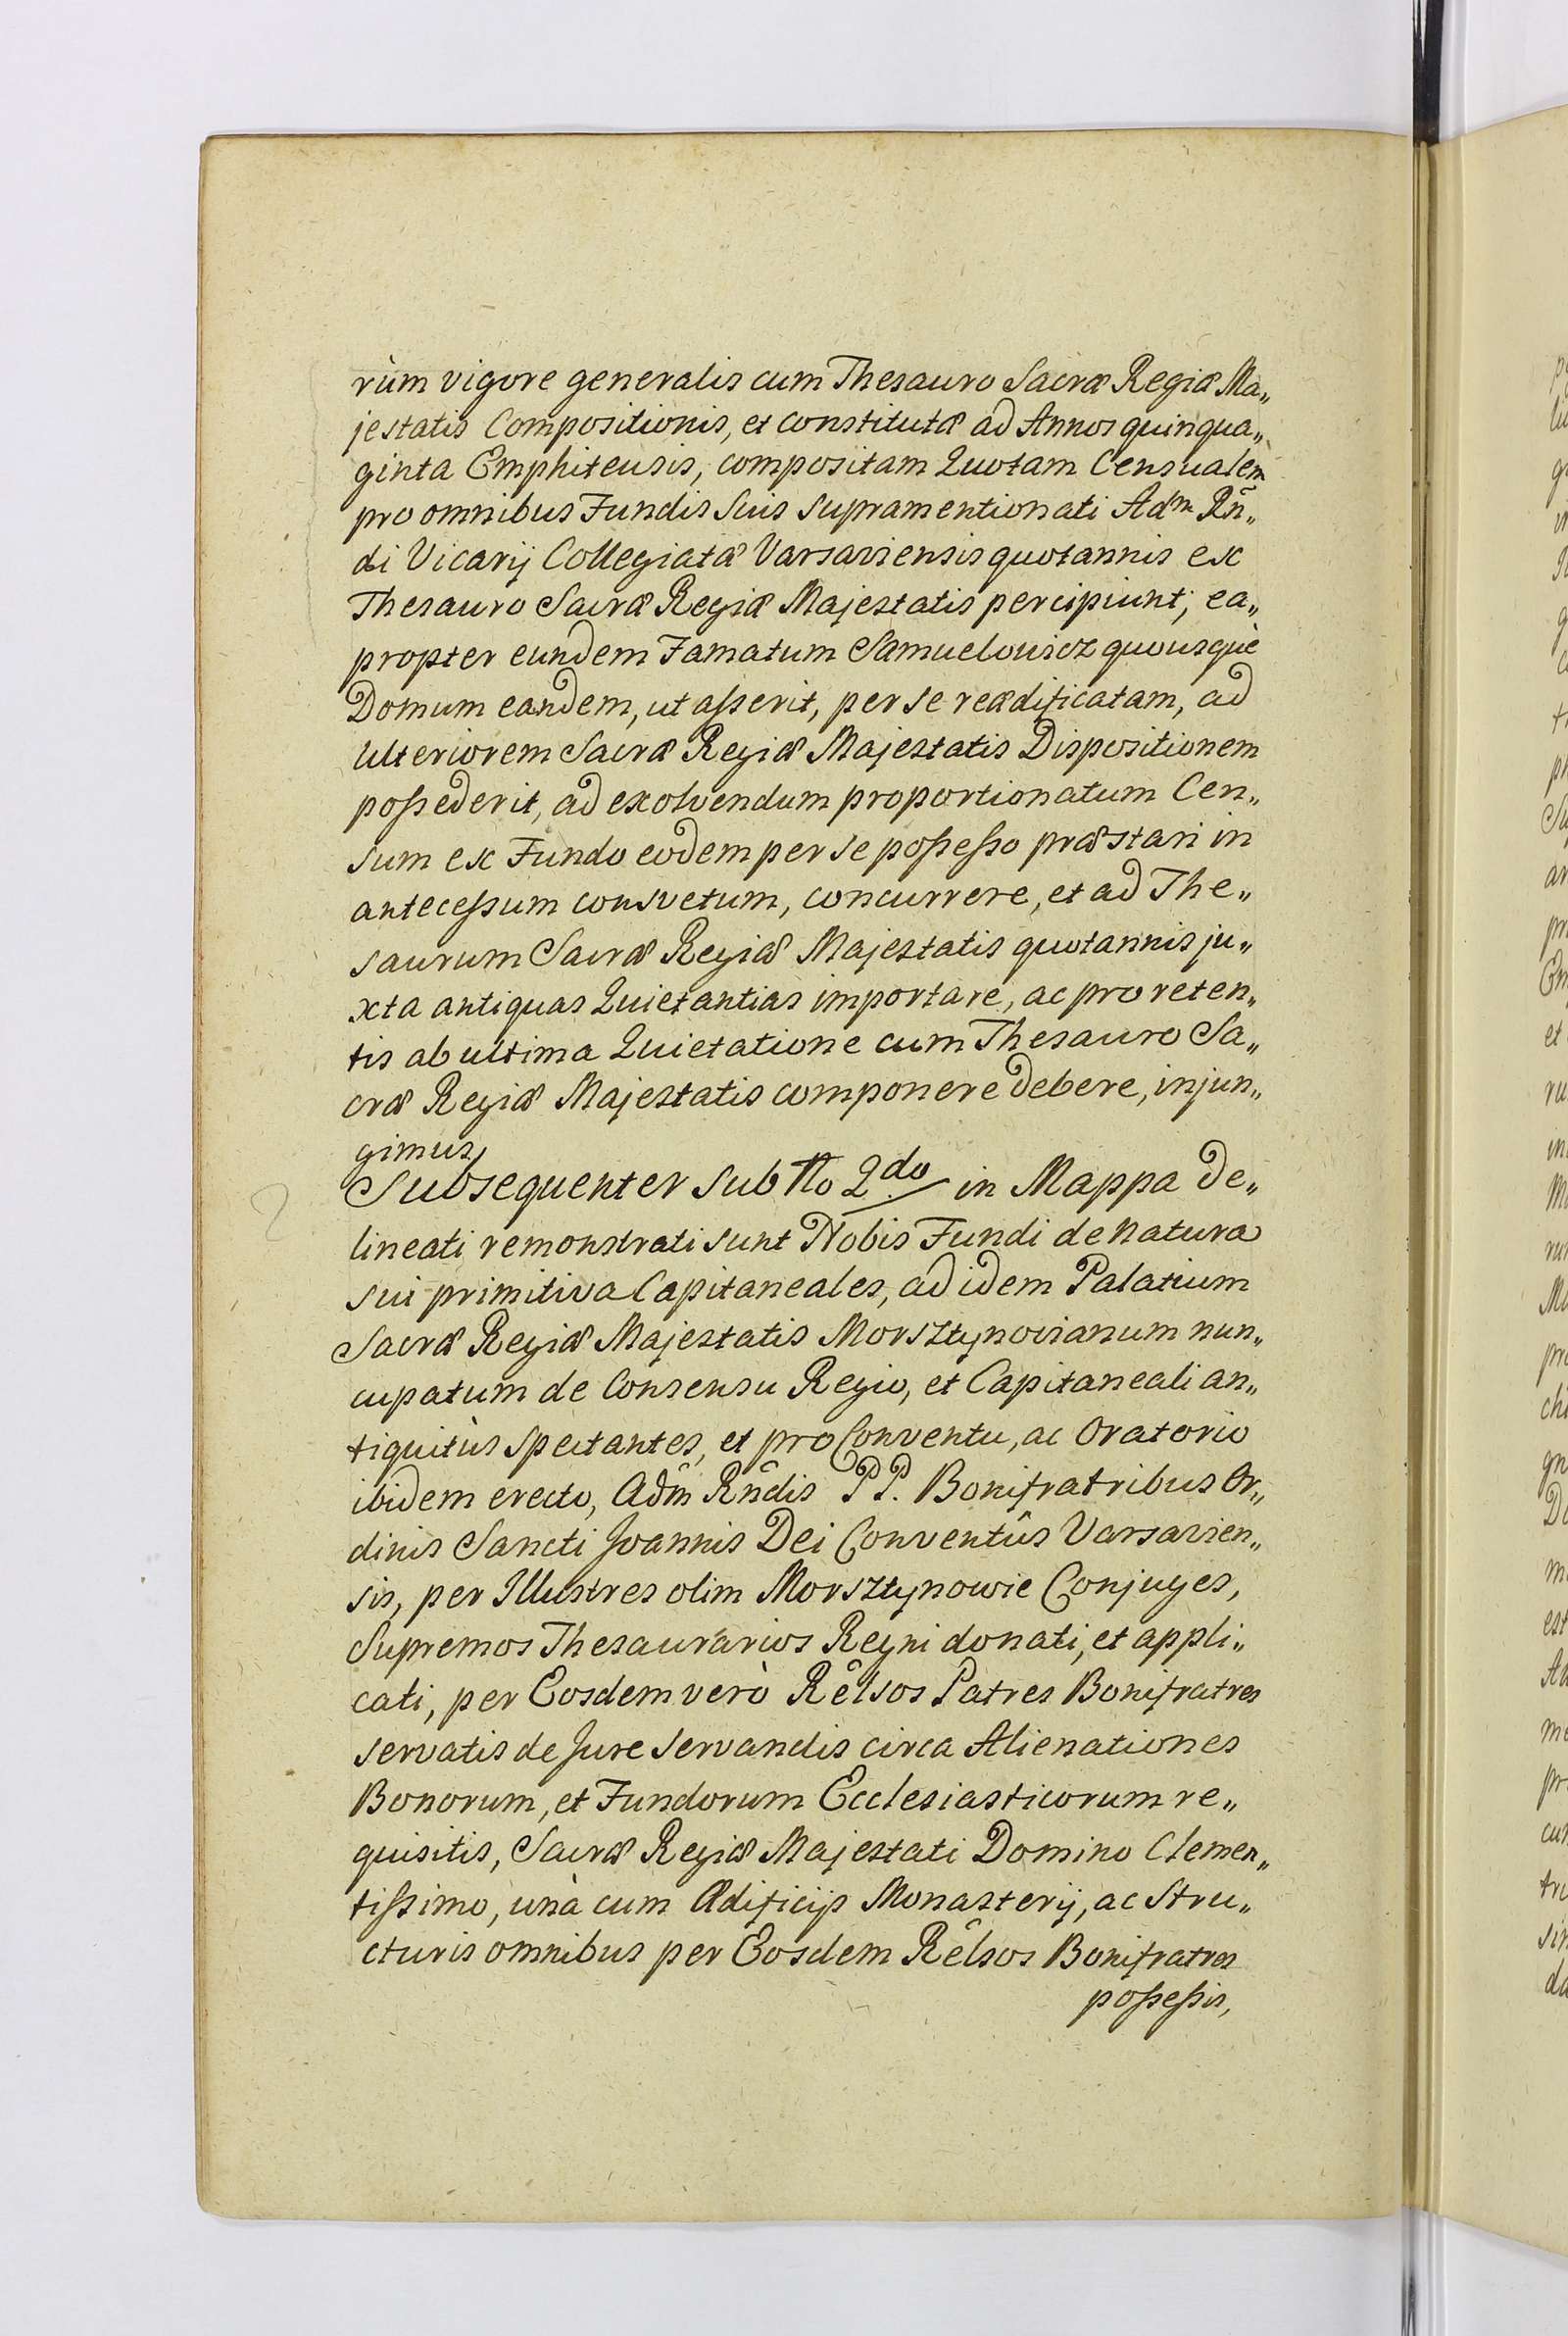 rùm vigore generalis cum Thesauro Sacræ Regiæ Ma„
jestatis Compositionis, et constitutæ ad Annos quinqua„
ginta Emphiteusis, compositam Quotam Censualem
pro omnibus Fundis Suis supramentionati Adm Rñ„
di Vicarij Collegiatæ Varsaviensis quotannis ex
Thesauro Sacræ Regiæ Majestatis percipiunt; ea„
propter eundem Famatum Samuelowicz quousquè
Domum eandem, ut asserit, per se reædificatam, ad
Ulteriorem Sacræ Regiæ Majestatis Dispositionem
possederit, ad exolvendum proportionatum Cen„
sum ex Fundo eodem per se possesso præstari in
antecessum consvetum, concurrere, et ad The„
saurum Sacræ Regiæ Majestatis quotannis ju„
xta antiquas Quietantias importare, ac pro reten„
tis ab ultima Quietatione cum Thesauro Sa„
cræ Regiæ Majestatis componere debere, injun„
gimus,
2 Subsequenter sub No 2do in Mappa de„
lineati remonstrati sunt Nobis Fundi de Natura
sui primitiva Capitaneales, ad idem Palatium
Sacræ Regiæ Majestatis Morsztynovianum nun„
cupatum de Consensu Regio, et Capitaneali an„
tiquitùs spectantes, et pro Conventu, ac Oratorio
ibidem erecto, Adm̂ Rn̂dis PP. Bonifratribus Or„
dinis Sancti Joannis Dei Conventûs Varsavien„
sis, per Illustres olim Morsztynowie Conjuges,
Supremos Thesaurarios Regni donati, et appli„
cati, per Eosdem verò Rêlsos Patres Bonifratres
servatis de Jure servandis circa Alienationes
Bonorum, et Fundorum Ecclesiasticorum re„
quisitis, Sacræ Regiæ Majestati Domino Clemen„
tissimo, unà cum Ædificijs Monasterij, ac Stru„
cturis omnibus per Eosdem Rêlsos Bonifratres
possessis,